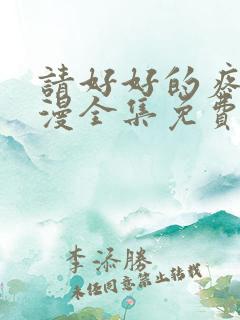 請好好的疼
漫全集免費
李添勝
未经同意禁止转载